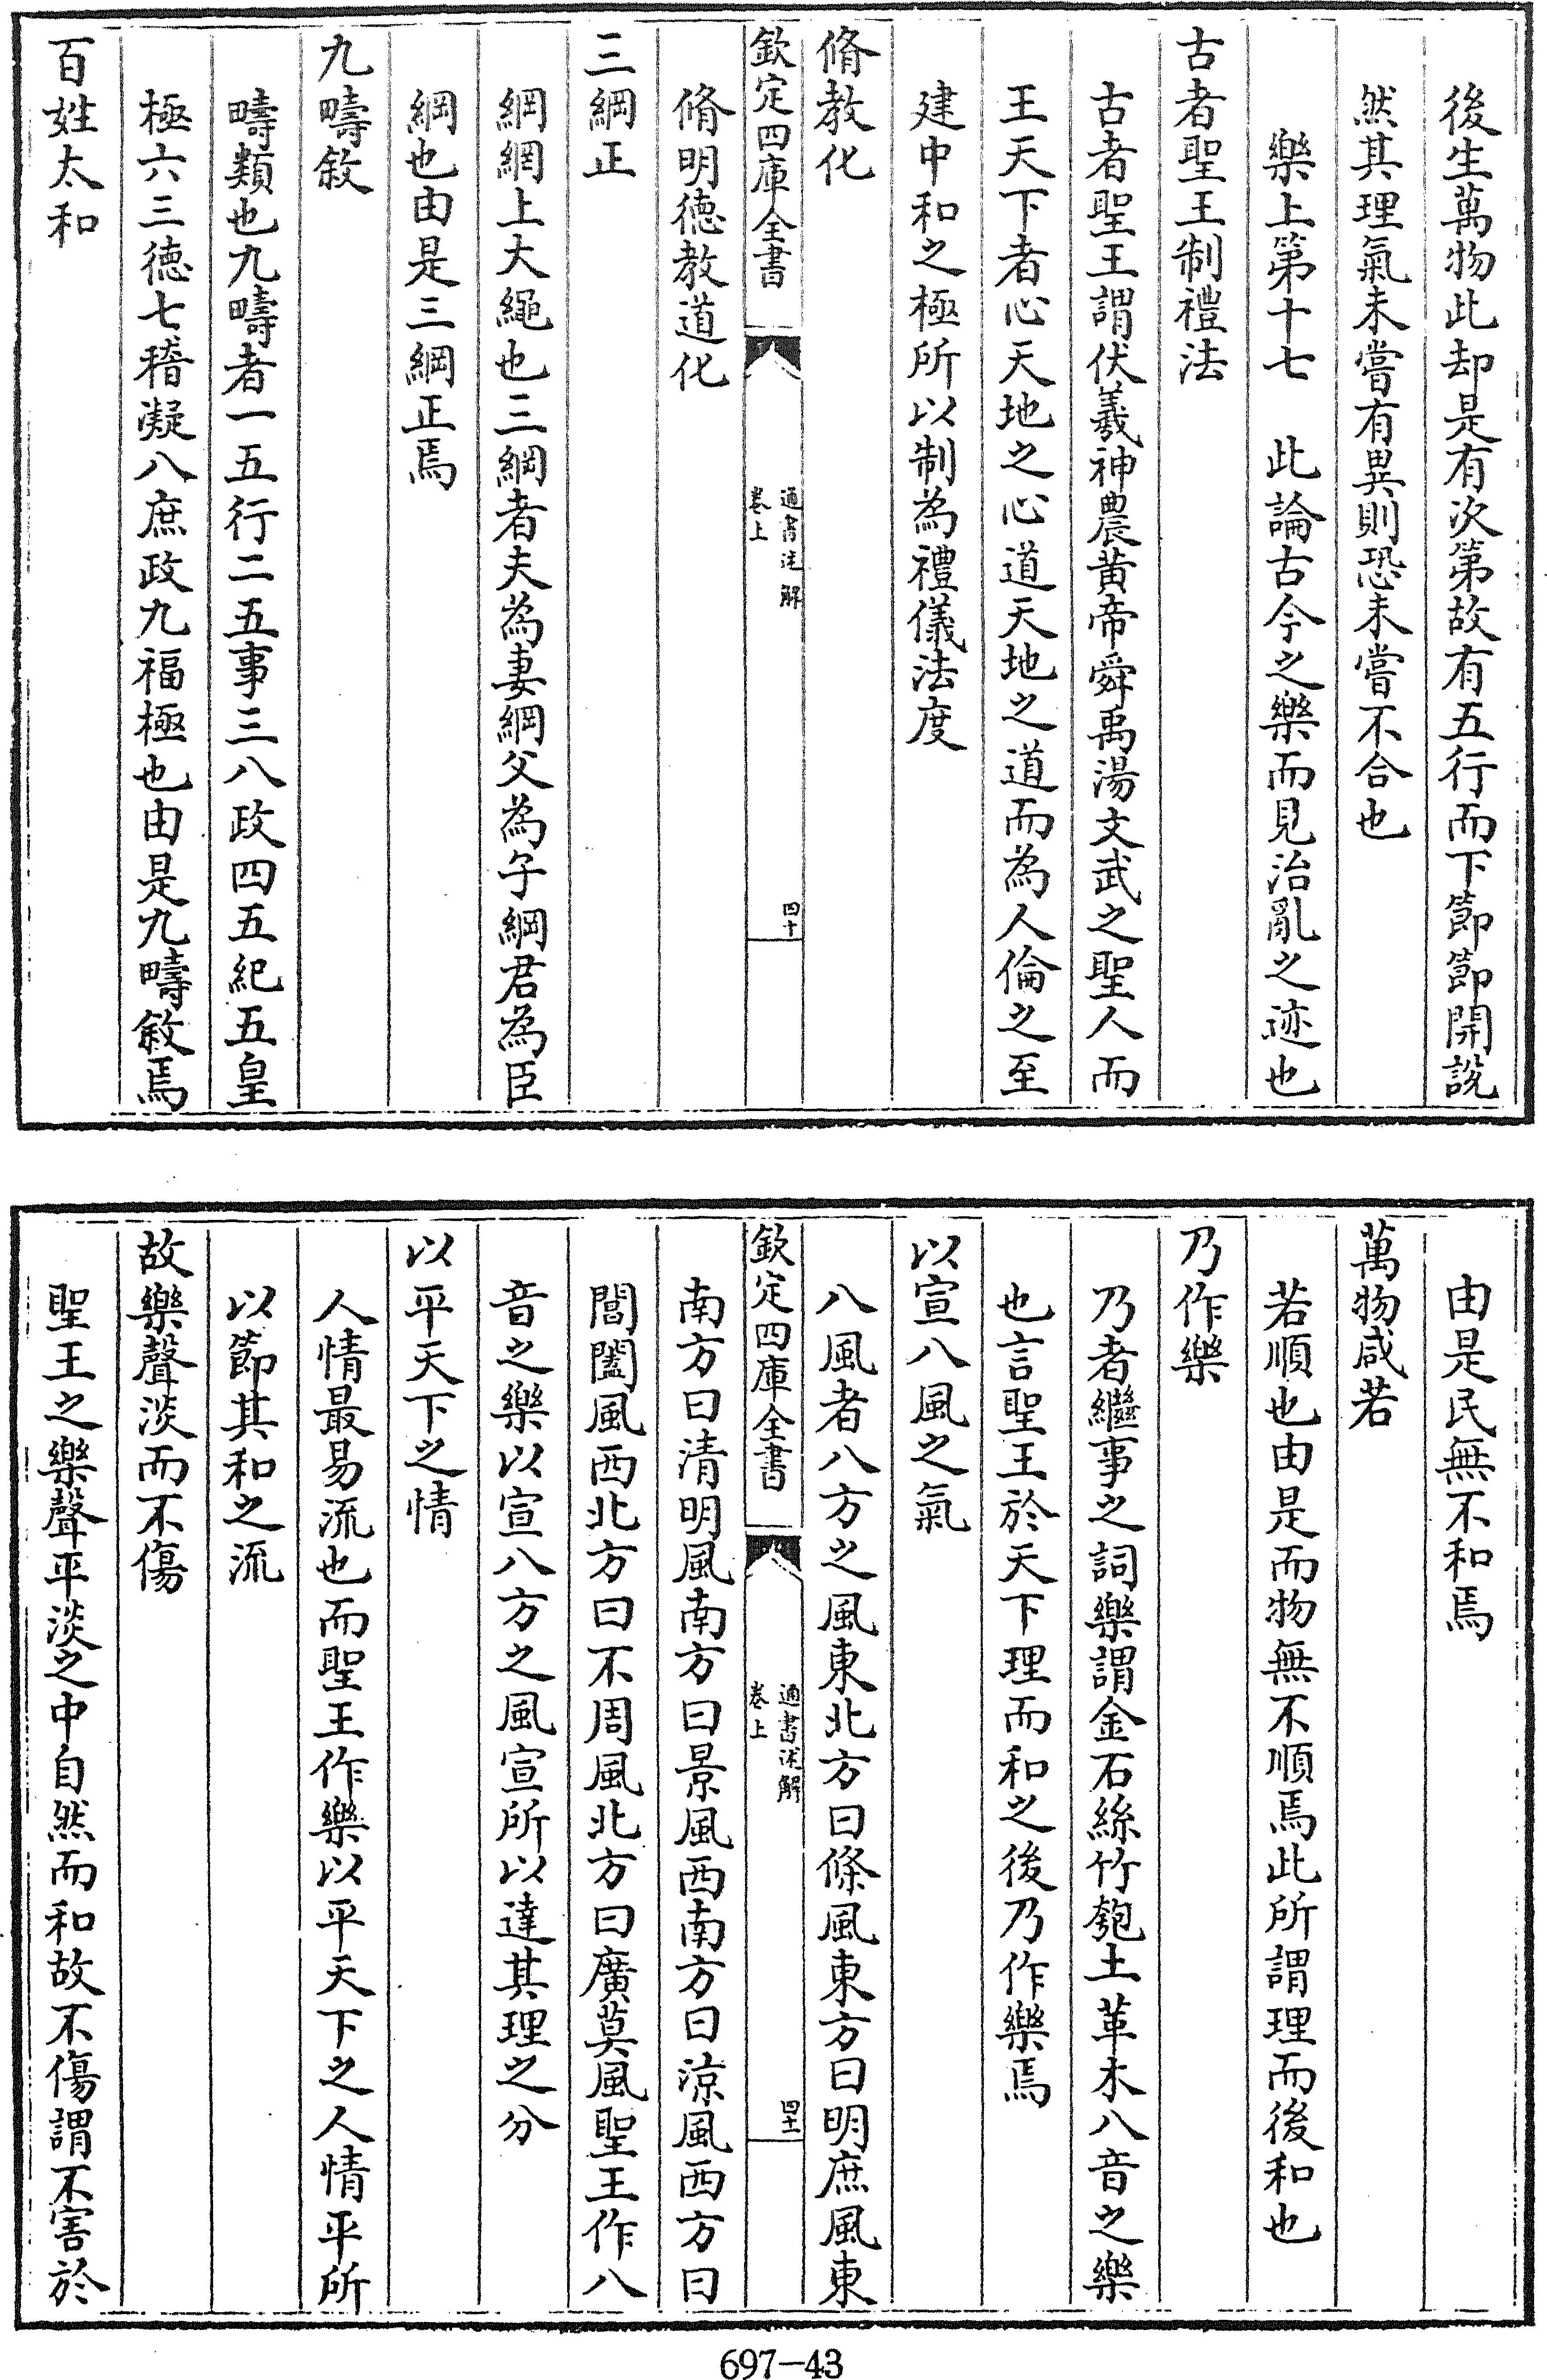 後生萬物此却是有次第故有五行而下節節開說
然其理氣未嘗有異則恐未嘗不合也
樂上第十七　此論古今之樂而見治亂之迹也
古者聖王制禮法
古者聖王謂伏羲神農黄帝舜禹湯文武之聖人而
王天下者心天地之心道天地之道而為人倫之至
建中和之極所以制為禮儀法度
脩教化
欽定四庫全書
通書述解
卷上
四十
脩明德教道化
三綱正
綱網上大繩也三綱者夫為妻綱父為子綱君為臣
綱也由是三綱正焉
九疇敘
疇類也九疇者一五行二五事三八政四五紀五皇
極六三德七稽凝八庶政九福極也由是九疇敘焉
百姓太和
由是民無不和焉
萬物咸若
若順也由是而物無不順焉此所謂理而後和也
乃作樂
乃者繼事之詞樂謂金石絲竹匏土革木八音之樂
也言聖王於天下理而和之後乃作樂焉
以宣八風之氣
八風者八方之風東北方曰條風東方曰明庶風東
欽定四庫全書
通書述解
卷上
四十一
南方曰清明風南方曰景風西南方曰涼風西方曰
閶闔風西北方曰不周風北方曰廣莫風聖王作八
音之樂以宣八方之風宣所以達其理之分
以平天下之情
人情最易流也而聖王作樂以平天下之人情平所
以節其和之流
故樂聲淡而不傷
聖王之樂聲平淡之中自然而和故不傷謂不害於
697-43